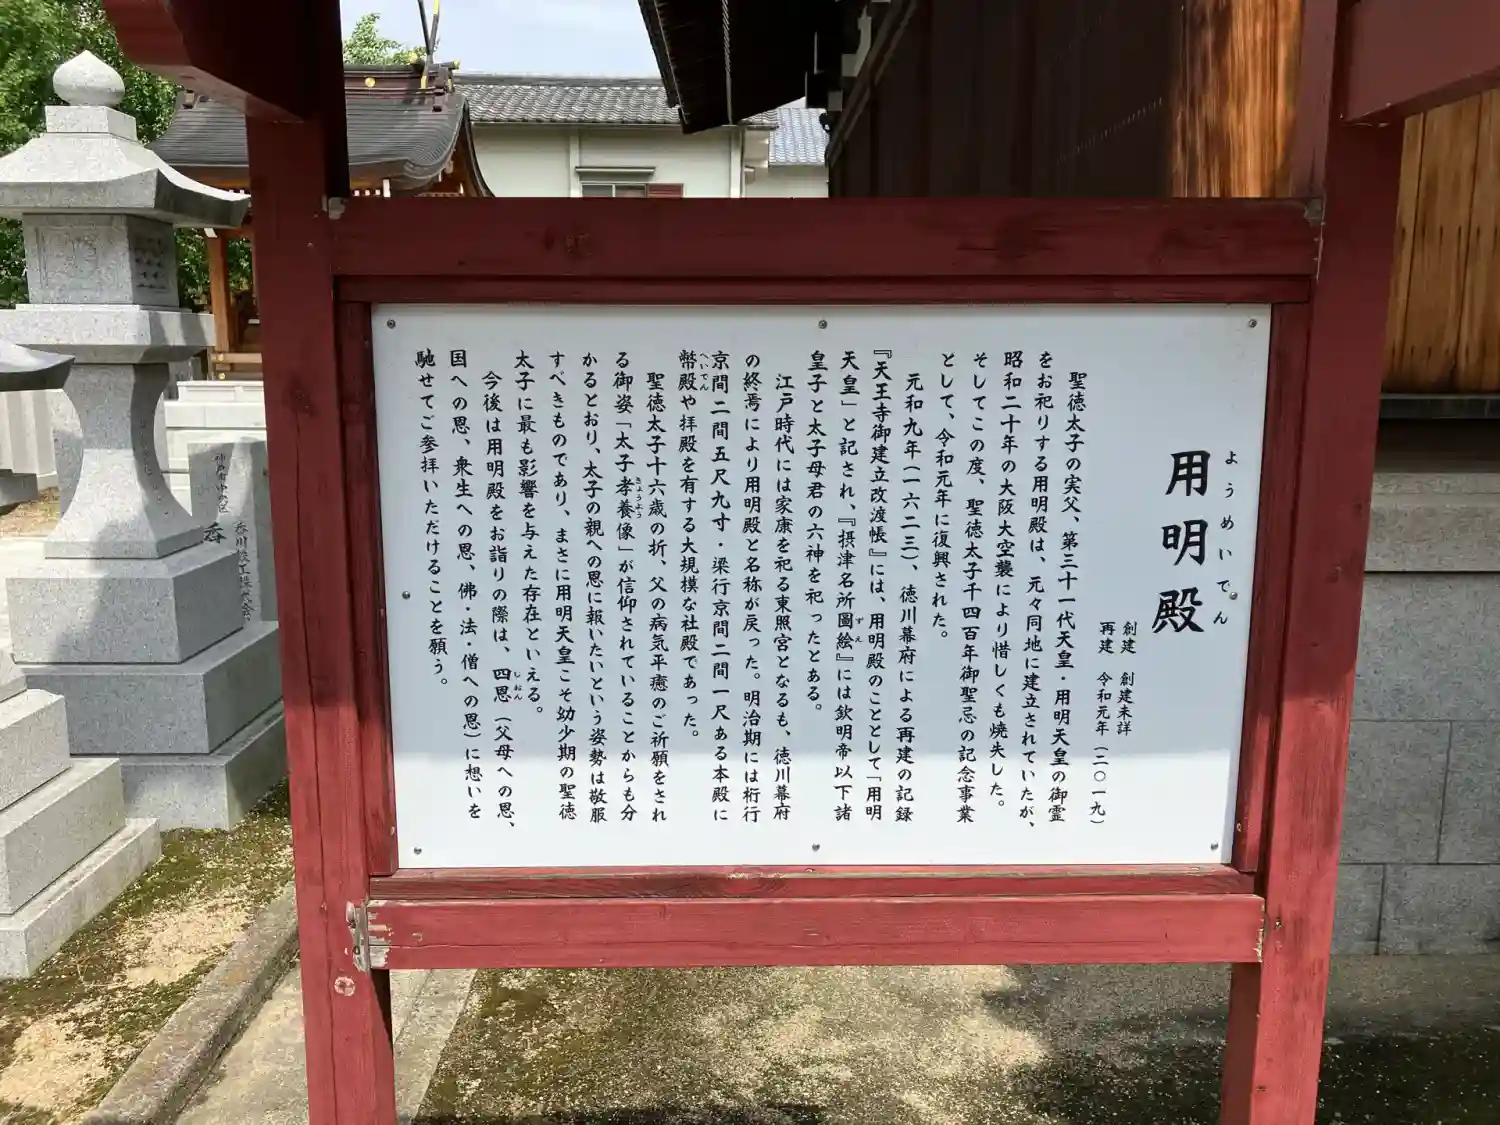 用明殿
ようめいでん
創建　創建未詳
再建　令和元年（二〇一九）
聖徳太子の実父、第三十一代天皇・用明天皇の御霊
をお祀りする用明殿は、元々同地に建立されていたが、
昭和二十年の大阪大空襲により惜しくも焼失した。
そしてこの度、聖徳太子千四百年御聖忌の記念事業
として、令和元年に復興された。
元和九年（一六二三）、徳川幕府による再建の記録
『天王寺御建立改渡帳』には、用明殿のこととして「用明
天皇」と記され、『摂津名所圖絵』には欽明帝以下諸
ずえ
皇子と太子母君の六神を祀ったとある。
江戸時代には家康を祀る東照宮となるも、徳川幕府
の終焉により用明殿と名称が戻った。明治期には桁行
京間二間五尺九寸・梁行京間二間一尺ある本殿に
幣殿や拝殿を有する大規模な社殿であった。
へいでん
聖徳太子十六歳の折、父の病気平癒のご祈願をされ
る御姿「太子孝養像」が信仰されていることからも分
きょうよう
かるとおり、太子の親への恩に報いたいという姿勢は敬服
すべきものであり、まさに用明天皇こそ幼少期の聖徳
太子に最も影響を与えた存在といえる。
今後は用明殿をお詣りの際は、四恩（父母への恩、
しおん
国への恩、衆生への恩、佛・法・僧への恩）に想いを
馳せてご参拝いただけることを願う。
神戸市中央区
香川鉄工株式会
香